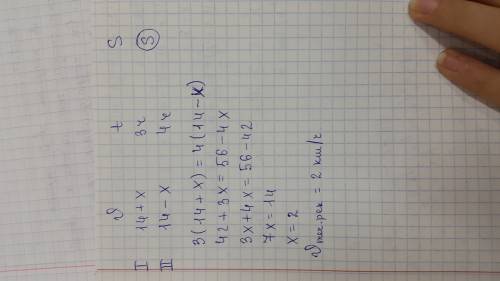 𝜗 t S
I 14+x 3ч S
II 14-x 4ч
3(14+x)=4(14-x)
42+3x=56-4x
3x+4x=56-42
7x=14
x=2
𝜗теч.рек = 2 км/ч